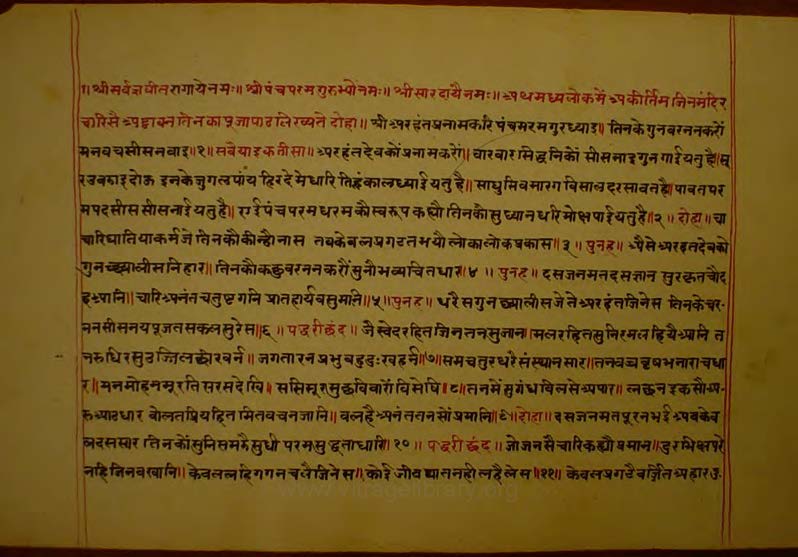 १। श्रीसर्वज्ञवीतरागायेनमः॥ श्रीपंचपरमगुरुभ्योनमः॥ श्रीसारदायैनमः॥ अथमध्यलोकमें अकीर्तिमजिनमंदिर
चारिसै अठ्ठावनतिनकापूजापाठलिख्यते दोहा॥ श्रीअरहंतप्रनामकरि पंचमरमगुरुध्याइ॥ तिनकेगुनबरननकरों
मनवचसीसनवाइ॥१॥ सवैयाइकतीसा॥ अरहंतदेवकोंप्रनामकरों॥ बारबारसिद्धनिकों सीसनाइगुनगाईयतुहै॥ सू
रउवझाइदोऊ इनकेजुगलपांय हिरदेमेधारितिहूंकालध्याईयतुहै॥ साधुसिवमारगविसालदरसावतहै॥ पावतपर
मपदसीससीसनाईयतुहै॥ एईपंचपरमधरमकौस्वरूपकह्यौ तिनकौसुध्यानधरिमोक्षपाईयतुहै॥२॥ दोहा॥ चा
चारिघातियाकर्मजे तिनकौकीन्हौनास तबकेवलप्रगटतभयौ लोकालोकप्रकास॥३॥ पुनह॥ अैसेअरहतदेवको
गुनछ्यालीसनिहार॥ तिनकौकछुवरननकरौं सुनौभव्यचितधार॥४॥ पुनह॥ दसजनमतदसज्ञान सुरकृतचौद
हआनि॥ चारिअनंतचतुष्टगनि प्रातहार्यवसुमानि॥५॥ पुनह॥ धरैसगुनछ्यालीसजेते अरहंतजिनेस तिनकेचर
मनसीसनय पूजतसकलसुरेस॥६॥ पद्धरीछंद॥ जैस्वेदरहितजिनतनसुजान॥ मलरहितसुनिरमलहियैआनि त
नरुधिरसुउज्जिलछीरवर्न॥ जगतारनप्रभुबहुदुःखहर्न॥७॥ समचतुरधरैसंस्थानसार॥ तनवज्रवृषभनाराचधा
र॥ मनमोहनमूरतिसरसदेषि॥ ससिसूरमुछविवारोंविसेषि॥८॥ तनमेंसुगंधविलसेअपार॥ लछनइकसौअ
रुआठधार बोलतप्रियहितमितवचनजानि॥ बलहैअनंततनसोंप्रमानि॥९॥ दोहा॥ दसजनमतपूरनभई अबकेव
लदससार तिनकोंसुनिसमझैसुधी परमसुद्धताधारि॥१०॥ पद्धरीछंद॥ जोजनसैचारिकह्यौप्रमान॥ दुरभिक्षपरे
नहिजिनबखानि॥ केवललहिगगनचलैजिनेस॥ कोईजीवघातनहीलहैलेस॥११॥ केवलप्रगटैवर्जितअहार उ
www.vitragelibrary.org